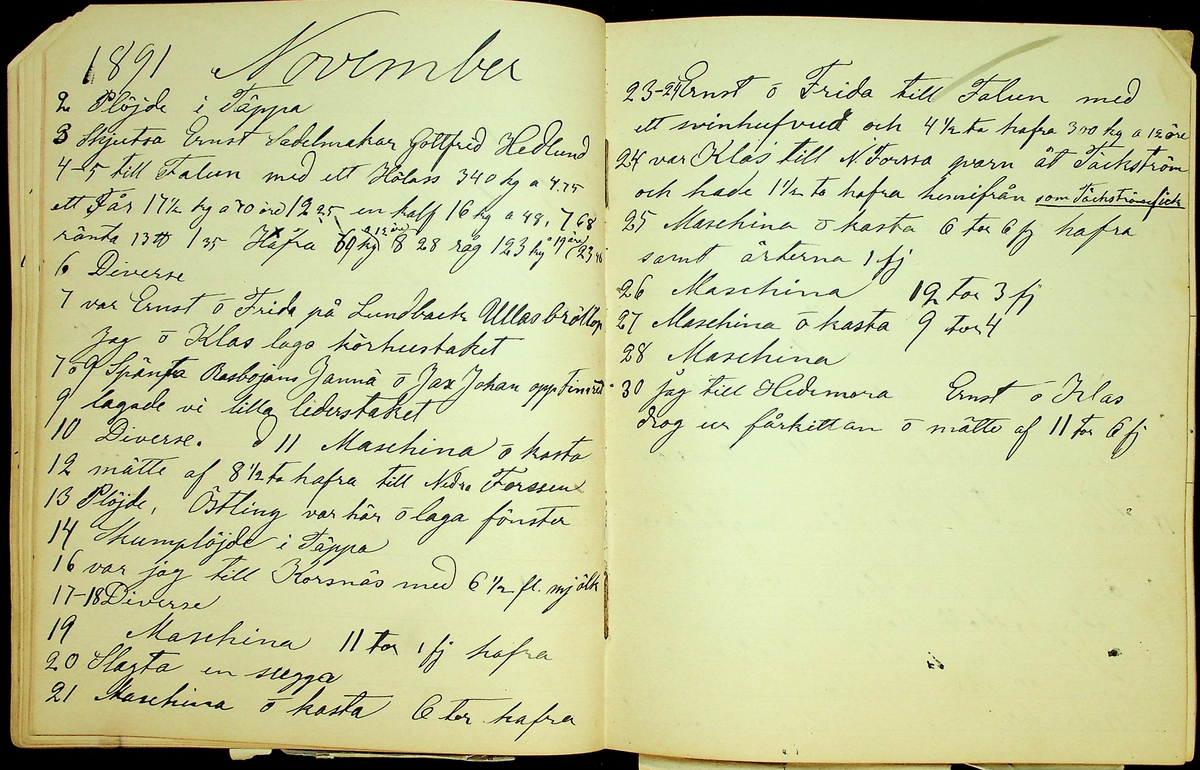 1891 November
2 Plöjde i Täppa
3 Skjutsa Ernst Sadelmakar Gottfrid Hedlund
4-5 till Falun med ett Hölass 340 kg a 4.75
ett Får 17½ kg a 70 öre 12 25 en kalf 16 kg a 48, 7 68
ränta 13 1 35 Hafra 69 kg a 12 öre 8 28 råg 123 kg a 19 öre 23
6 Diverse
7 var Ernst o Frida på Lundbacks Ullas bröllop
Jag o Klas laga körhustaket
7 o 9 Spänta Jannä o Jax Johan opp
9 lagade vi lilla liderstaket
10 Diverse. d 11 Maschina o kasta
12 mätte af 8½ to hafra till Nedra Forssen
13 Plöjde, Östling var här o laga fönster
14 Skumplöjde i Täppa
16 var jag till Korsnäs med 6½ fl. mjölk
17-18 Diverse
19 Maschina 11 tor 1 fj hafra
20 Slagta en sugga
21 Maschina o kasta 6 tor hafra
23-24 Ernst o Frida till Falun med
ett svinhufvud och 4½ to hafra 370 kg a 12 öre
24 var Klas till N Forssa qvarn åt Täckström
och hade 1½ to hafra hemifrån som Täckström fick
25 Maschina o kasta 6 tor 6 fj hafra
samt ärterna 1 fj
26 Maschina 12 tor 3 fj
27 Maschina o kasta 9 tor 4
28 Maschina
30 jag till Hedemora Ernst o Klas
drog ur fårkittan o mätte af 11 tor 6 fj